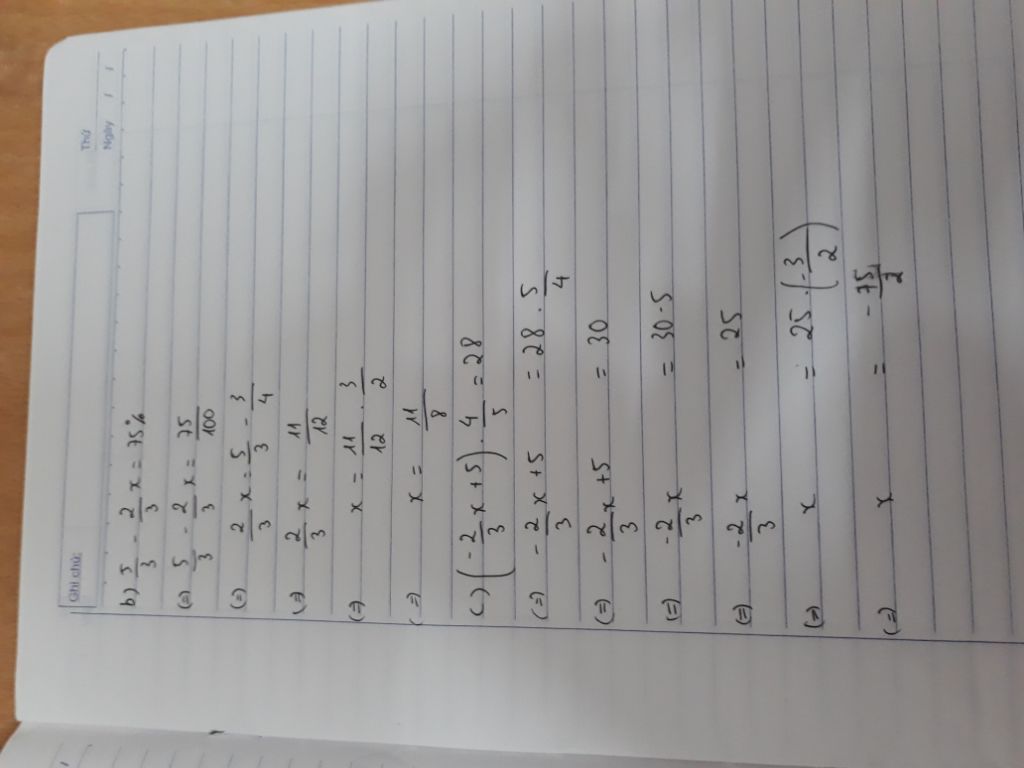 Ghi chú:
Thứ
Ngày / /
b) 5/3 - 2/3 x = 75%
(=) 5/3 - 2/3 x = 75/100
(=) 2/3 x = 5/3 - 3/4
(=) 2/3 x = 11/12
(=) x = 11/12 . 3/2
(=) x = 11/8
c) (-2/3 x + 5) . 4/5 = 28
(=) -2/3 x + 5 = 28 . 5/4
(=) -2/3 x + 5 = 30
(=) -2/3 x = 30 - 5
(=) -2/3 x = 25
(=) x = 25 . (-3/2)
(=) x = -75/2